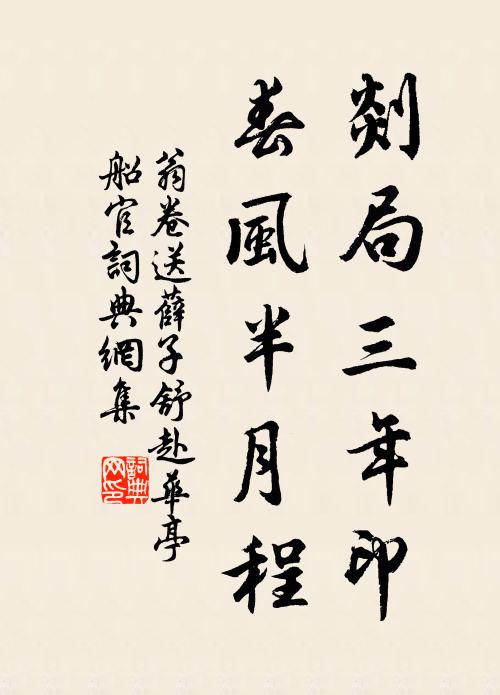 剡局三年印
春風半月程
翁卷送薛子舒赴華亭
船官詞典網集
詞典网印